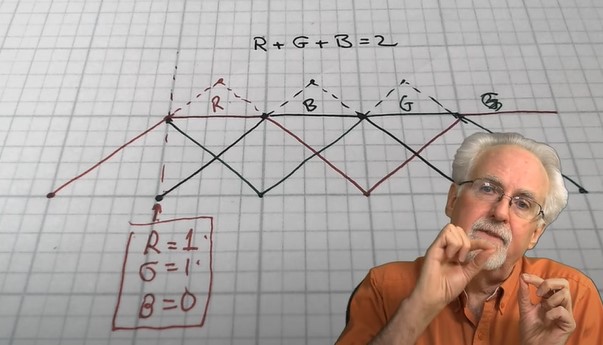 R + G + B = 2
R B G
R = 1
G = 1
B = 0